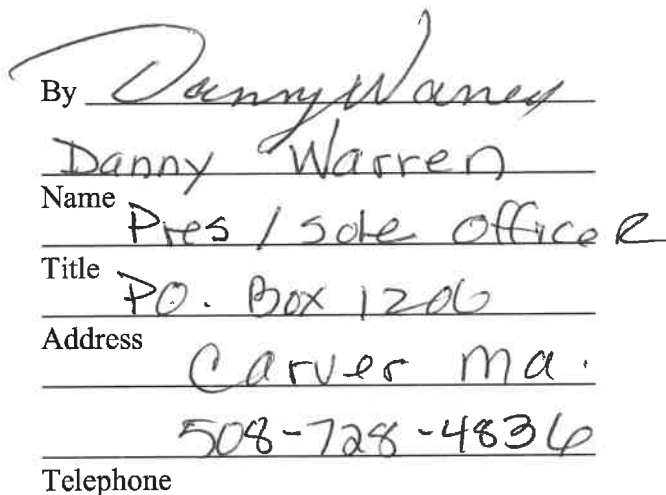 By Danny Warren
Danny Warren
Name
Pres / sole officer
Title
PO. Box 1206
Address
Carver Ma.
508-728-4836
Telephone